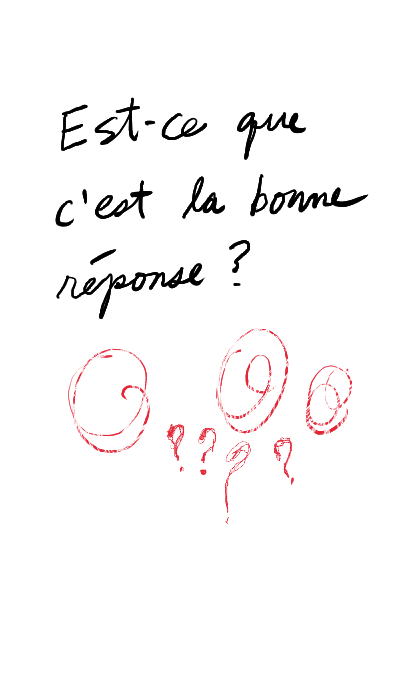 Est-ce que
c'est la bonne
réponse ?
?? ? ?